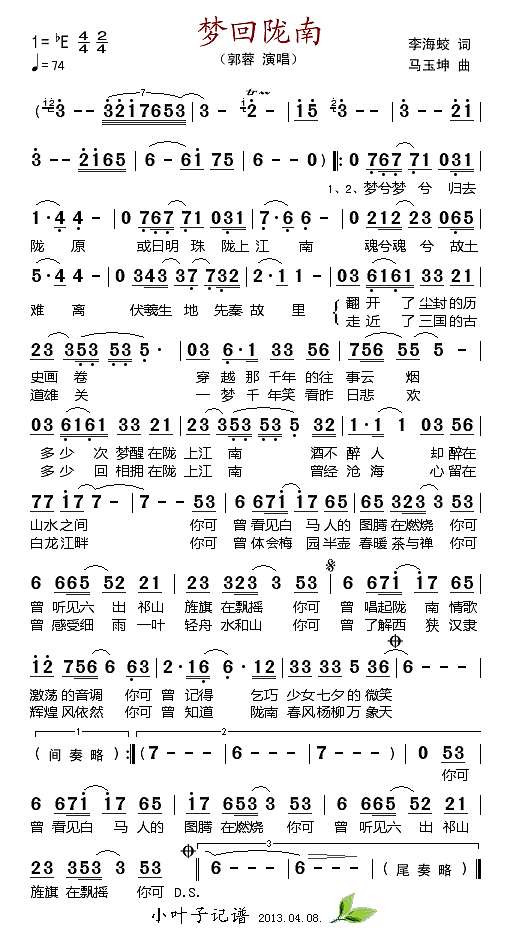 梦回陇南
1=♭E 4/4 2/4
(郭蓉 演唱)
李海蛟 词
♩=74
马玉坤 曲
(3 - - 3217653 | 3 - 2 - | 15 3 - | 3 - - 21 |
3 - - 2165 | 6 - 61 75 | 6 - - 0) |: 0 767 71 031 |
1、2、梦兮梦 兮 归去
1· 4 4 - | 0 767 71 031 | 7· 6 6 - | 0 212 23 065 |
陇 原 或曰明 珠 陇上 江 南 魂兮魂 兮 故土
5· 4 4 - | 0 343 37 732 | 2· 1 1 - | 03 6161 33 21 |
难 离 伏羲生 地 先秦 故 里 翻 开 了 尘封的历
走 近 了 三国的古
23 353 53 5· | 03 6·1 33 56 | 756 55 5 - |
史画 卷 穿 越那 千年的往 事云 烟
道雄 关 一 梦 千年笑看昨 日悲 欢
03 6161 33 21 | 23 353 53 5 032 | 1·1 1 03 56 |
多少 次 梦醒在陇 上江 南 酒不 醉人 却醉在
多少 回 相拥在陇 上江 南 曾经 沧海 心留在
77 17 7 - | 7 - - 53 | 6 671 17 65 | 65 323 3 53 |
山水之间 你可 曾 看见白 马人的 图腾在燃烧 你可
白龙江畔 你可 曾 体会梅 园半壶 春暖茶与禅 你可
6 665 52 21 | 23 323 3 53 | 6 671 17 65 |
曾 听见六 出 祁山 旌旗 在飘摇 你可 曾 唱起陇 南 情歌
曾 感受细 雨 一叶 轻舟 水和山 你可 曾 了解西 狭 汉隶
12 756 6 63 | 2·16· 6· 12 | 33 53 5 36 | 6 - - - |
激荡的音调 你可 曾 记得 乞巧 少女七夕的 微笑
辉煌风依然 你可 曾 知道 陇南 春风杨柳万 象天
1 2
(间奏略) :| (7 - - - | 6 - - - | 7 - - -) | 0 53 |
你可
6 671 17 65 | 17 653 3 53 | 6 665 52 21 |
曾 看见白 马人的 图腾 在燃烧 你可 曾 听见六 出 祁山
23 353 3 53 | 6 - - - | 6 - - - | (尾奏略) |
旌旗 在飘摇 你可 D.S.
小叶子记谱 2013.04.08.